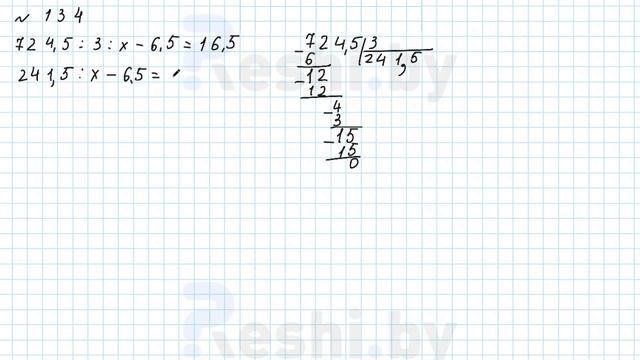 № 134
724,5 : 3 : x – 6,5 = 16,5
241,5 : x – 6,5 =
– 724,5 | 3
6 241,5
– 12
12
– 4
3
– 15
15
0
Reshi.by
Reshi.by